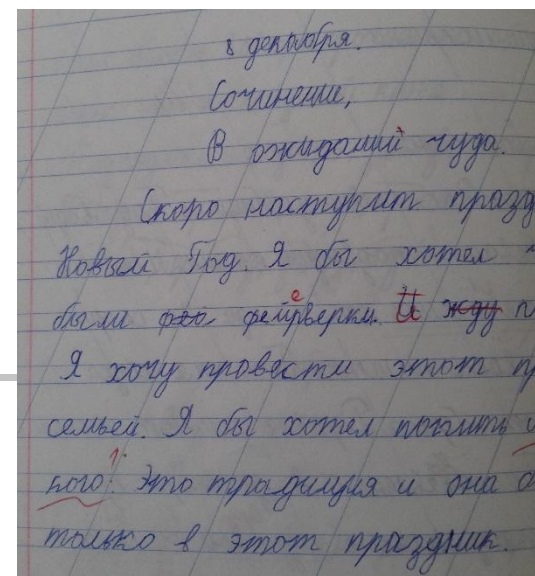 8 декабря.
Сочинение,
В ожидании чуда.
Скоро наступит празд
Новый Год. Я бы хотел
были фейрверки. И жду
Я хочу провести этот пр
семьей. Я бы хотел
кого! Это традиция и она
только в этот праздник.